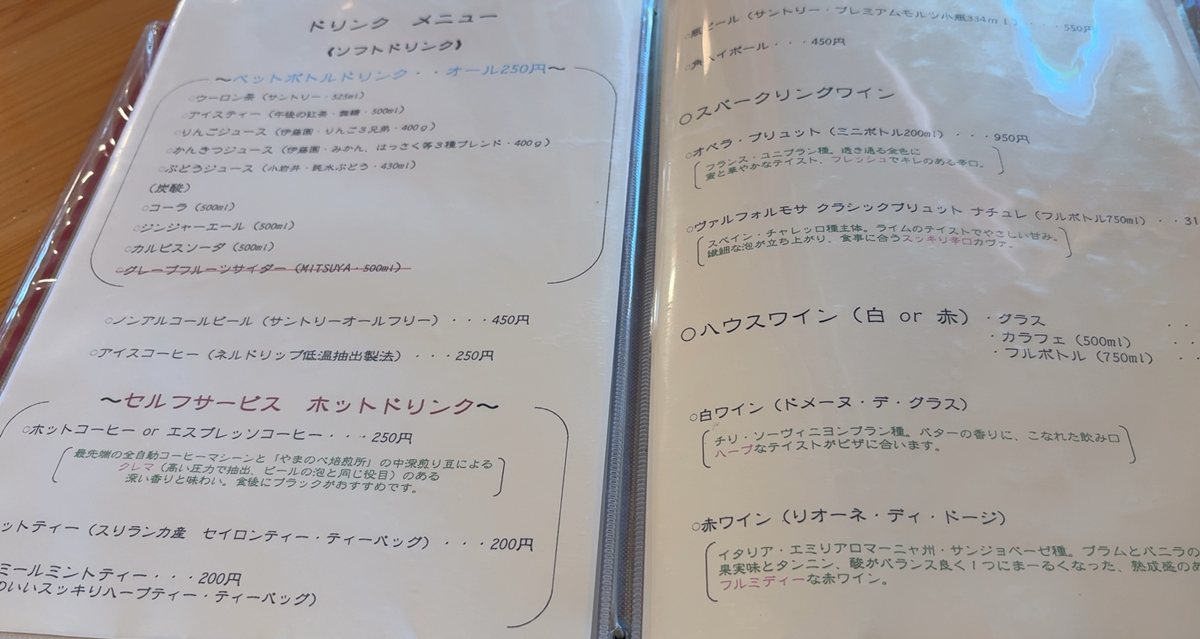 ドリンク メニュー
《ソフトドリンク》
～ペットボトルドリンク・・オール250円～
○ウーロン茶（サントリー・525ml）
○アイスティー（午後の紅茶・無糖・500ml）
○りんごジュース（伊藤園・りんご3兄弟・400g）
○かんきつジュース（伊藤園・みかん、はっさく等3種ブレンド・400g）
○ぶどうジュース（小岩井・純水ぶどう・430ml）
（炭酸）
○コーラ（500ml）
○ジンジャーエール（500ml）
○カルピスソーダ（500ml）
○グレープフルーツサイダー（MITSUYA・500ml）
○ノンアルコールビール（サントリーオールフリー）・・・450円
○アイスコーヒー（ネルドリップ低温抽出製法）・・・250円
～セルフサービス ホットドリンク～
○ホットコーヒー or エスプレッソコーヒー・・・250円
最先端の全自動コーヒーマシーンと「やまのべ焙煎所」の中深煎り豆による
クレマ（高い圧力で抽出、ビールの泡と同じ役目）のある
深い香りと味わい。食後にブラックがおすすめです。
ットティー（スリランカ産 セイロンティー・ティーバッグ）・・・200円
ミールミントティー・・・200円
のいいスッキリハーブティー・ティーバッグ）
○瓶ビール（サントリー・プレミアムモルツ小瓶334ml）・・・550円
○角ハイボール・・・450円
○スパークリングワイン
○オペラ・ブリュット（ミニボトル200ml）・・・950円
フランス・ユニブラン種。透き通る金色に
蜜と華やかなテイスト、フレッシュでキレのある辛口。
○ヴァルフォルモサ クラシックブリュット ナチュレ（フルボトル750ml）・・31
スペイン・チャレッロ種主体。ライムのテイストでやさしい甘み。
繊細な泡が立ち上がり、食事に合うスッキリ辛口カヴァ。
○ハウスワイン（白 or 赤）・グラス ・・
・カラフェ（500ml）
・フルボトル（750ml）・・
○白ワイン（ドメーヌ・デ・グラス）
チリ・ソーヴィニヨンブラン種。バターの香りに、こなれた飲み口
ハーブなテイストがピザに合います。
○赤ワイン（リオーネ・ディ・ドージ）
イタリア・エミリアロマーニャ州・サンジョベーゼ種。プラムとバニラの
果実味とタンニン、酸がバランス良く1つにまーるくなった、熟成感のあ
フルミディーな赤ワイン。